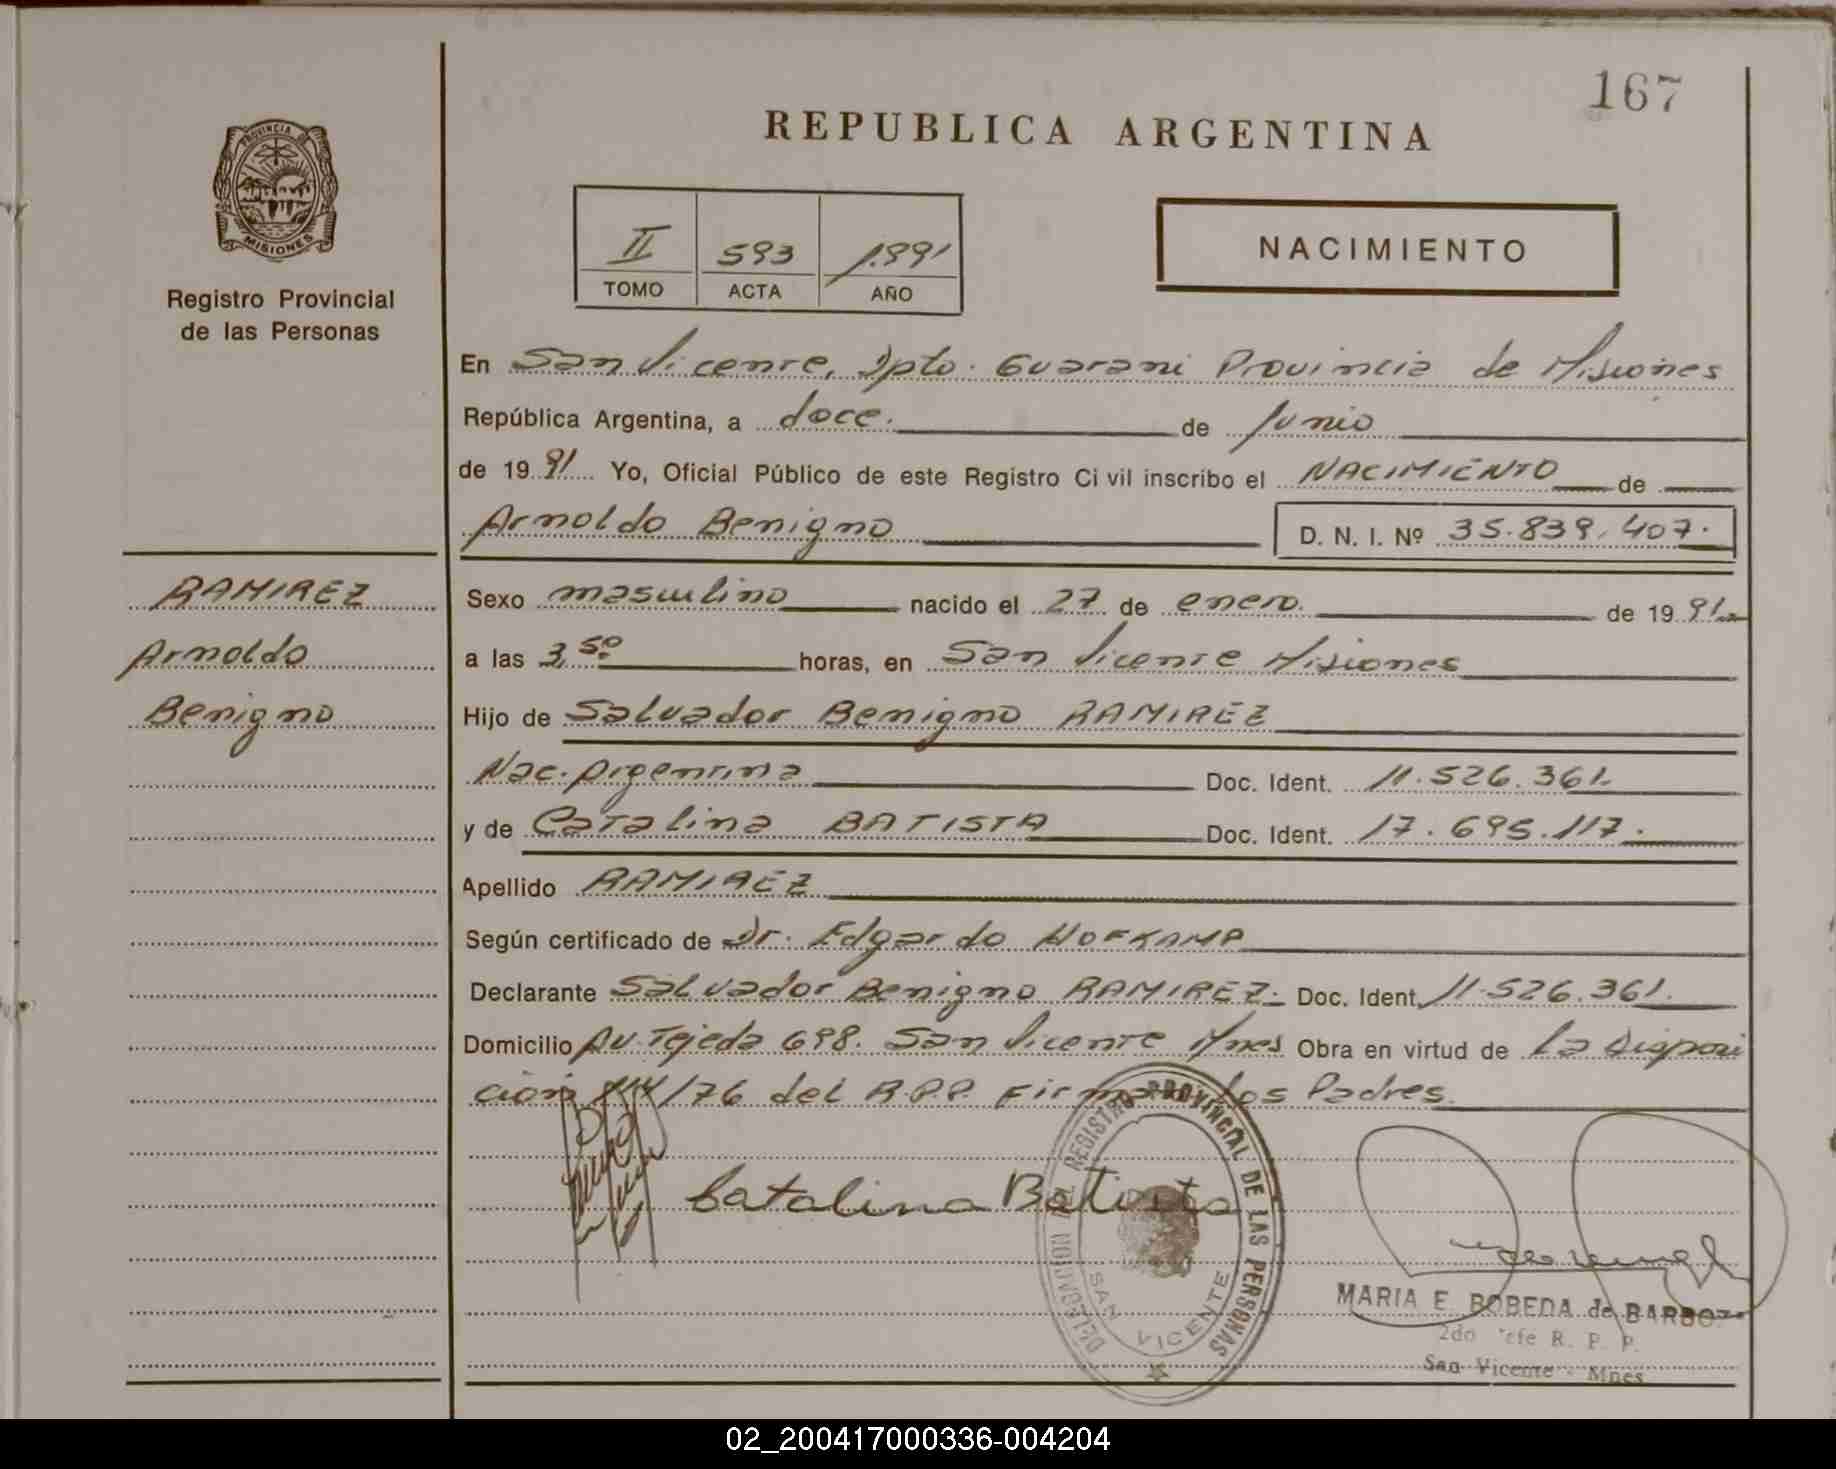 167
REPUBLICA ARGENTINA
PROVINCIA DE
MISIONES
Registro Provincial
de las Personas
II 593 1.991
TOMO ACTA AÑO
NACIMIENTO
En San Vicente, Dpto. Guarani Provincia de Misiones
República Argentina, a doce. de Junio
de 19 91 Yo, Oficial Público de este Registro Ci vil inscribo el NACIMIENTO de
Arnoldo Benigno D. N. I. Nº 35.839.407.
RAMIREZ
Arnoldo
Benigno
Sexo masculino nacido el 27 de enero. de 19 91
a las 3,50 horas, en San Vicente Misiones
Hijo de Salvador Benigno RAMIREZ
Nac. Argentina Doc. Ident. 11.526.361.
y de Catalina BATISTA Doc. Ident. 17.695.117.
Apellido RAMIREZ
Según certificado de Dr. Edgardo HOFKAMP
Declarante Salvador Benigno RAMIREZ. Doc. Ident. 11.526.361.
Domicilio Av. Tejeda 698. San Vicente Mnes Obra en virtud de la disposi
ción /76 del R.P.P. Firman los Padres.
Catalina Batista
DELEGACION DEL REGISTRO PROVINCIAL DE LAS PERSONAS
SAN VICENTE
MARIA E. BOBEDA de BARBOZ
2do Jefe R. P. P.
San Vicente - Mnes
02_200417000336-004204